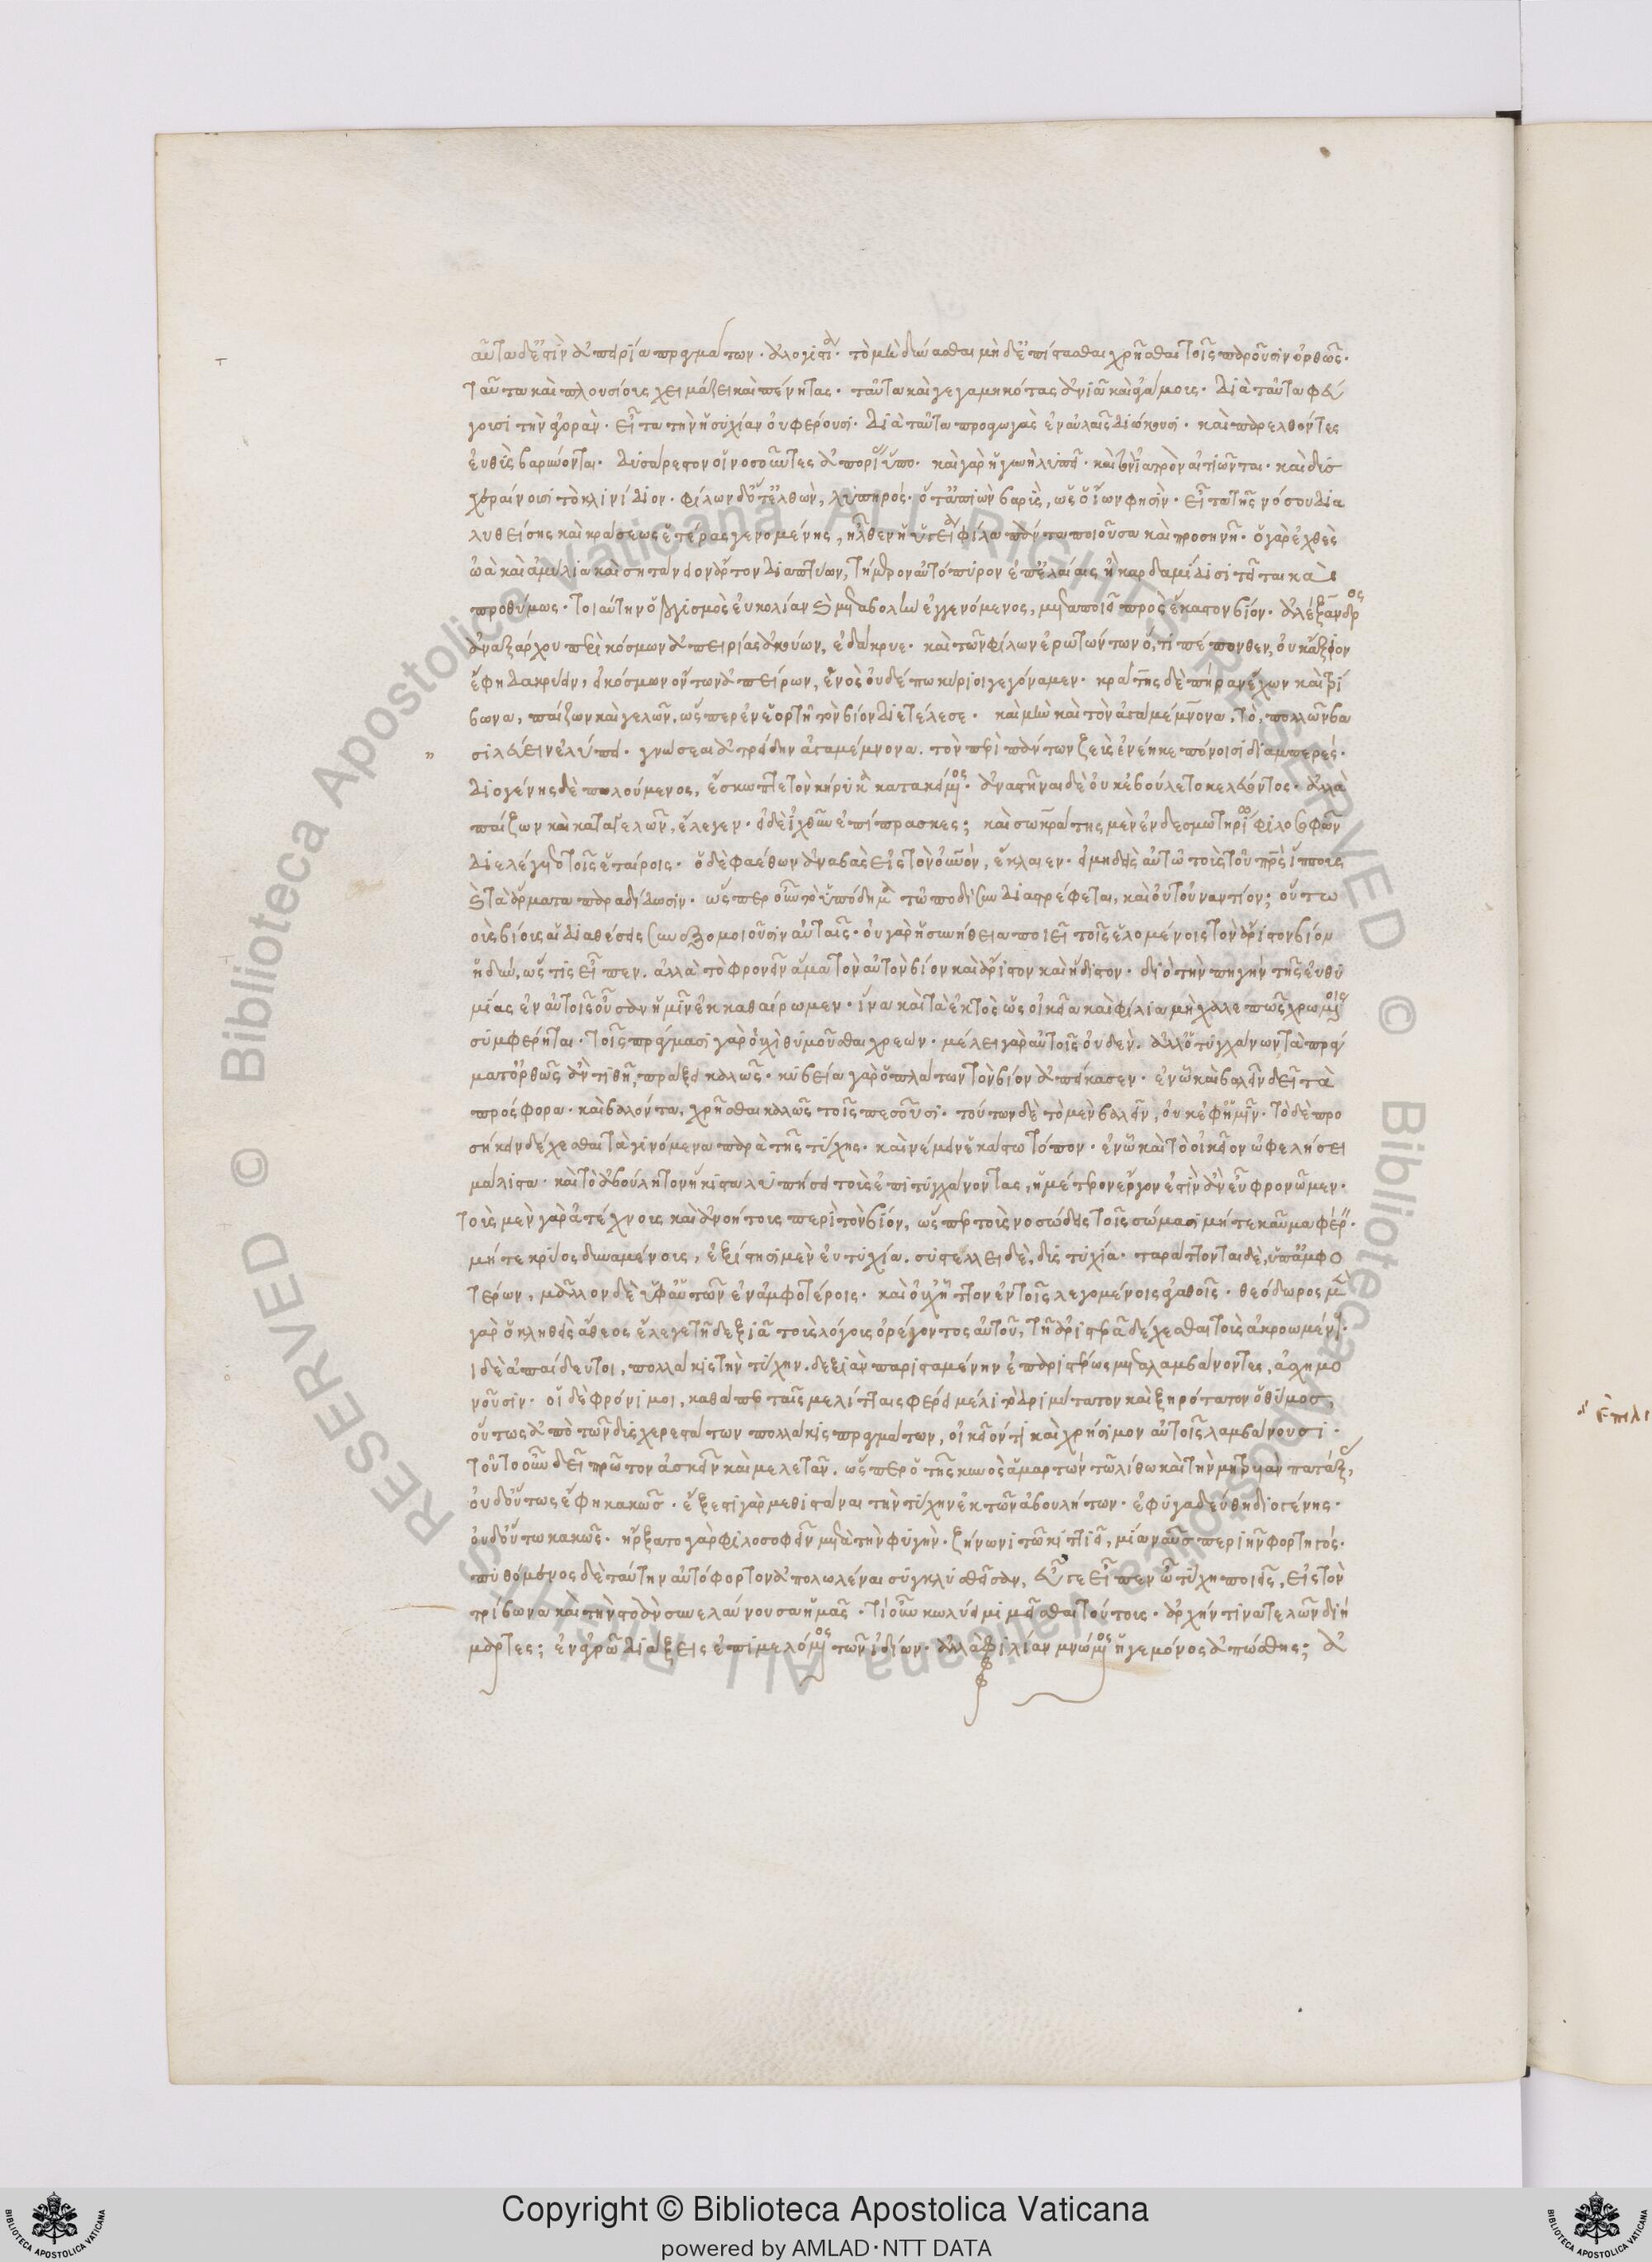 αὗται δέ εἰσιν ἀπειρία πραγμάτων. ἀλογιστία. τὸ μὴ δύνασθαι μηδ' ἐπίστασθαι χρῆσθαι τοῖς παροῦσιν ὀρθῶς.
ταῦτα καὶ πλουσίους χειμάζει καὶ πένητας. ταῦτα καὶ γεγαμηκότας ἀνιᾷ καὶ ἀγάμους. διὰ ταῦτα φεύ
γουσι τὴν ἀγορὰν. εἶτα τὴν ἡσυχίαν οὐ φέρουσι. διὰ ταῦτα προαγωγὰς ἐν αὐλαῖς διώκουσι. καὶ παρελθόντες
εὐθὺς βαρύνονται. δυσάρεστον οἱ νοσοῦντες ἀπορίας ὕπο. καὶ γὰρ ἡ γυνὴ λυπεῖ. καὶ τὸν ἰατρὸν αἰτιῶνται. καὶ δυσ
χεραίνουσι τὸ κλινίδιον. φίλων δ' ὅ τ' ἐλθὼν, λυπηρός. ὅ τ' ἀπιὼν βαρὺς, ὡς ὁ ἴων φησὶν. εἶτα τῆς νόσου δια
λυθείσης καὶ κράσεως ἑτέρας γενομένης, ἦλθεν ἡ ὑγεία φίλα πάντα ποιοῦσα καὶ προσηνῆ. ὁ γὰρ ἐχθὲς
ὠὰ καὶ ἀμύλια καὶ σητάνιον ἄρτον διαπτύων, τήμερον αὐτόπυρον ἐπ' ἐλαίαις ἢ καρδαμίδι σιτεῖται καὶ
προθύμως. τοιαύτην ὁ λογισμὸς εὐκολίαν καὶ μεταβολὴν ἐγγενόμενος, μεταποιεῖ πρὸς ἕκαστον βίον. ἀλέξανδρος
ἀναξάρχου περὶ κόσμων ἀπειρίας ἀκούων, ἐδάκρυε. καὶ τῶν φίλων ἐρωτώντων ὅ, τι πέπονθεν, οὐκ ἄξιον
ἔφη δακρύειν, εἰ κόσμων ὄντων ἀπείρων, ἑνὸς οὐδέπω κύριοι γεγόναμεν. κράτης δὲ πήραν ἔχων καὶ τρί
βωνα, παίζων καὶ γελῶν, ὥσπερ ἐν ἑορτῇ τὸν βίον διετέλεσε. καὶ μὴν καὶ τὸν ἀγαμέμνονα, τὸ, πολλῶν βα
σιλεύειν ἐλύπει. γνώσεαι ἀτρείδην ἀγαμέμνονα. τὸν περὶ πάντων ζεὺς ἐνέηκε πόνοισι διαμπερές.
διογένης δὲ πωλούμενος, ἔσκωπτε τὸν κήρυκα κατακείμενος. ἀναστῆναι δὲ οὐκ ἐβούλετο κελεύοντος. ἀλλὰ
παίζων καὶ καταγελῶν, ἔλεγεν. εἰ δὲ ἰχθῦν ἐπίπρασκες; καὶ σωκράτης μὲν ἐν δεσμωτηρίῳ φιλοσοφῶν
διελέγετο τοῖς ἑταίροις. ὁ δὲ φαέθων ἀναβὰς εἰς τὸν οὐρανόν, ἔκλαιεν. εἰ μηδεὶς αὐτῷ τοὺς τοῦ πατρὸς ἵππους
καὶ τὰ ἅρματα παραδίδωσιν. ὥσπερ οὖν τὸ ὑπόδημα τῷ ποδὶ συνδιαστρέφεται, καὶ οὐ τοὐναντίον; οὕτω
τοὺς βίους αἱ διαθέσεις συνεξομοιοῦσιν αὐταῖς. οὐ γὰρ ἡ συνήθεια ποιεῖ τοῖς ἑλομένοις τὸν ἄριστον βίον
ἡδύν, ὥς τις εἶπεν. ἀλλὰ τὸ φρονεῖν ἅμα τὸν αὐτὸν βίον καὶ ἄριστον καὶ ἥδιστον. διὸ τὴν πηγὴν τῆς εὐθυ
μίας ἐν αὐτοῖς οὖσαν ἡμῖν ἐκκαθαίρωμεν. ἵνα καὶ τὰ ἐκτὸς ὡς οἰκεῖα καὶ φίλια μὴ χαλεπῶς χρωμένοις
συμφέρηται. τοῖς πράγμασι γὰρ οὐχὶ θυμοῦσθαι χρεών. μέλει γὰρ αὐτοῖς οὐδέν. ἀλλ' ὁ τυγχάνων τὰ πράγ
ματ' ὀρθῶς ἂν τιθῇ, πράξει καλῶς. κυβείᾳ γὰρ ὁ πλάτων τὸν βίον ἀπείκασεν. ἐν ᾧ καὶ βαλεῖν δεῖ τὰ
πρόσφορα. καὶ βαλόντα, χρῆσθαι καλῶς τοῖς πεσοῦσι. τούτων δὲ τὸ μὲν βαλεῖν, οὐκ ἐφ' ἡμῖν. τὸ δὲ προ
σηκόντως δέχεσθαι τὰ γινόμενα παρὰ τῆς τύχης. καὶ νέμειν ἑκάστῳ τόπον. ἐν ᾧ καὶ τὸ οἰκεῖον ὠφελήσει
μάλιστα. καὶ τὸ ἀβούλητον ἥκιστα λυπήσει τοὺς ἐπιτυγχάνοντας, ἡμέτερον ἔργον ἐστὶν ἂν εὖ φρονῶμεν.
τοὺς μὲν γὰρ ἀτέχνους καὶ ἀνοήτους περὶ τὸν βίον, ὥσπερ τοὺς νοσώδεις τοῖς σώμασι μήτε καῦμα φέρειν.
μήτε κρύος δυναμένους, ἐξίστησι μὲν εὐτυχία. συστέλλει δὲ, δυστυχία. ταράττονται δὲ, ὑπ' ἀμφο
τέρων, μᾶλλον δὲ ὑφ' αὑτῶν ἐν ἀμφοτέροις. καὶ οὐχ ἧττον ἐν τοῖς λεγομένοις ἀγαθοῖς. θεόδωρος μὲν
γὰρ ὁ κληθεὶς ἄθεος ἔλεγε τῇ δεξιᾷ τοὺς λόγους ὀρέγοντος αὐτοῦ, τῇ ἀριστερᾷ δέχεσθαι τοὺς ἀκροωμένους.
οἱ δὲ ἀπαίδευτοι, πολλάκις τὴν τύχην. δεξιὰν παρισταμένην ἐπαριστέρως μεταλαμβάνοντες, ἀσχημο
νοῦσιν. οἱ δὲ φρόνιμοι, καθάπερ ταῖς μελίτταις φέρει μέλι τὸ δριμύτατον καὶ ξηρότατον ὁ θύμος,
οὕτως ἀπὸ τῶν δυσχερεστάτων πολλάκις πραγμάτων, οἰκεῖόν τι καὶ χρήσιμον αὐτοῖς λαμβάνουσι.
τοῦτο οὖν δεῖ πρῶτον ἀσκεῖν καὶ μελετᾶν. ὥσπερ ὁ τῆς κυνὸς ἁμαρτὼν τῷ λίθῳ καὶ τὴν μητρυιὰν πατάξας,
οὐδ' οὕτως ἔφη κακῶς. ἔξεστι γὰρ μεθιστάναι τὴν τύχην ἐκ τῶν ἀβουλήτων. ἐφυγαδεύθη διογένης.
οὐδ' οὕτω κακῶς. ἤρξατο γὰρ φιλοσοφεῖν μετὰ τὴν φυγὴν. ζήνωνι τῷ κιττιεῖ, μία ναῦς περιῆν φορτηγός.
πυθόμενος δὲ ταύτην αὐτόφορτον ἀπολωλέναι συγκλυσθεῖσαν, εὖ γε εἶπεν ὦ τύχη ποιεῖς, εἰς τὸν
τρίβωνα καὶ τὴν στοὰν συνελαύνουσα ἡμᾶς. τί οὖν κωλύει μιμεῖσθαι τούτους. ἀρχήν τινα τελῶν διή
μαρτες; ἐν ἀγρῷ διάξεις ἐπιμελόμενος τῶν ἰδίων. ἀλλὰ φιλίαν μνώμενος ἡγεμόνος ἀπώσθης; ἀ